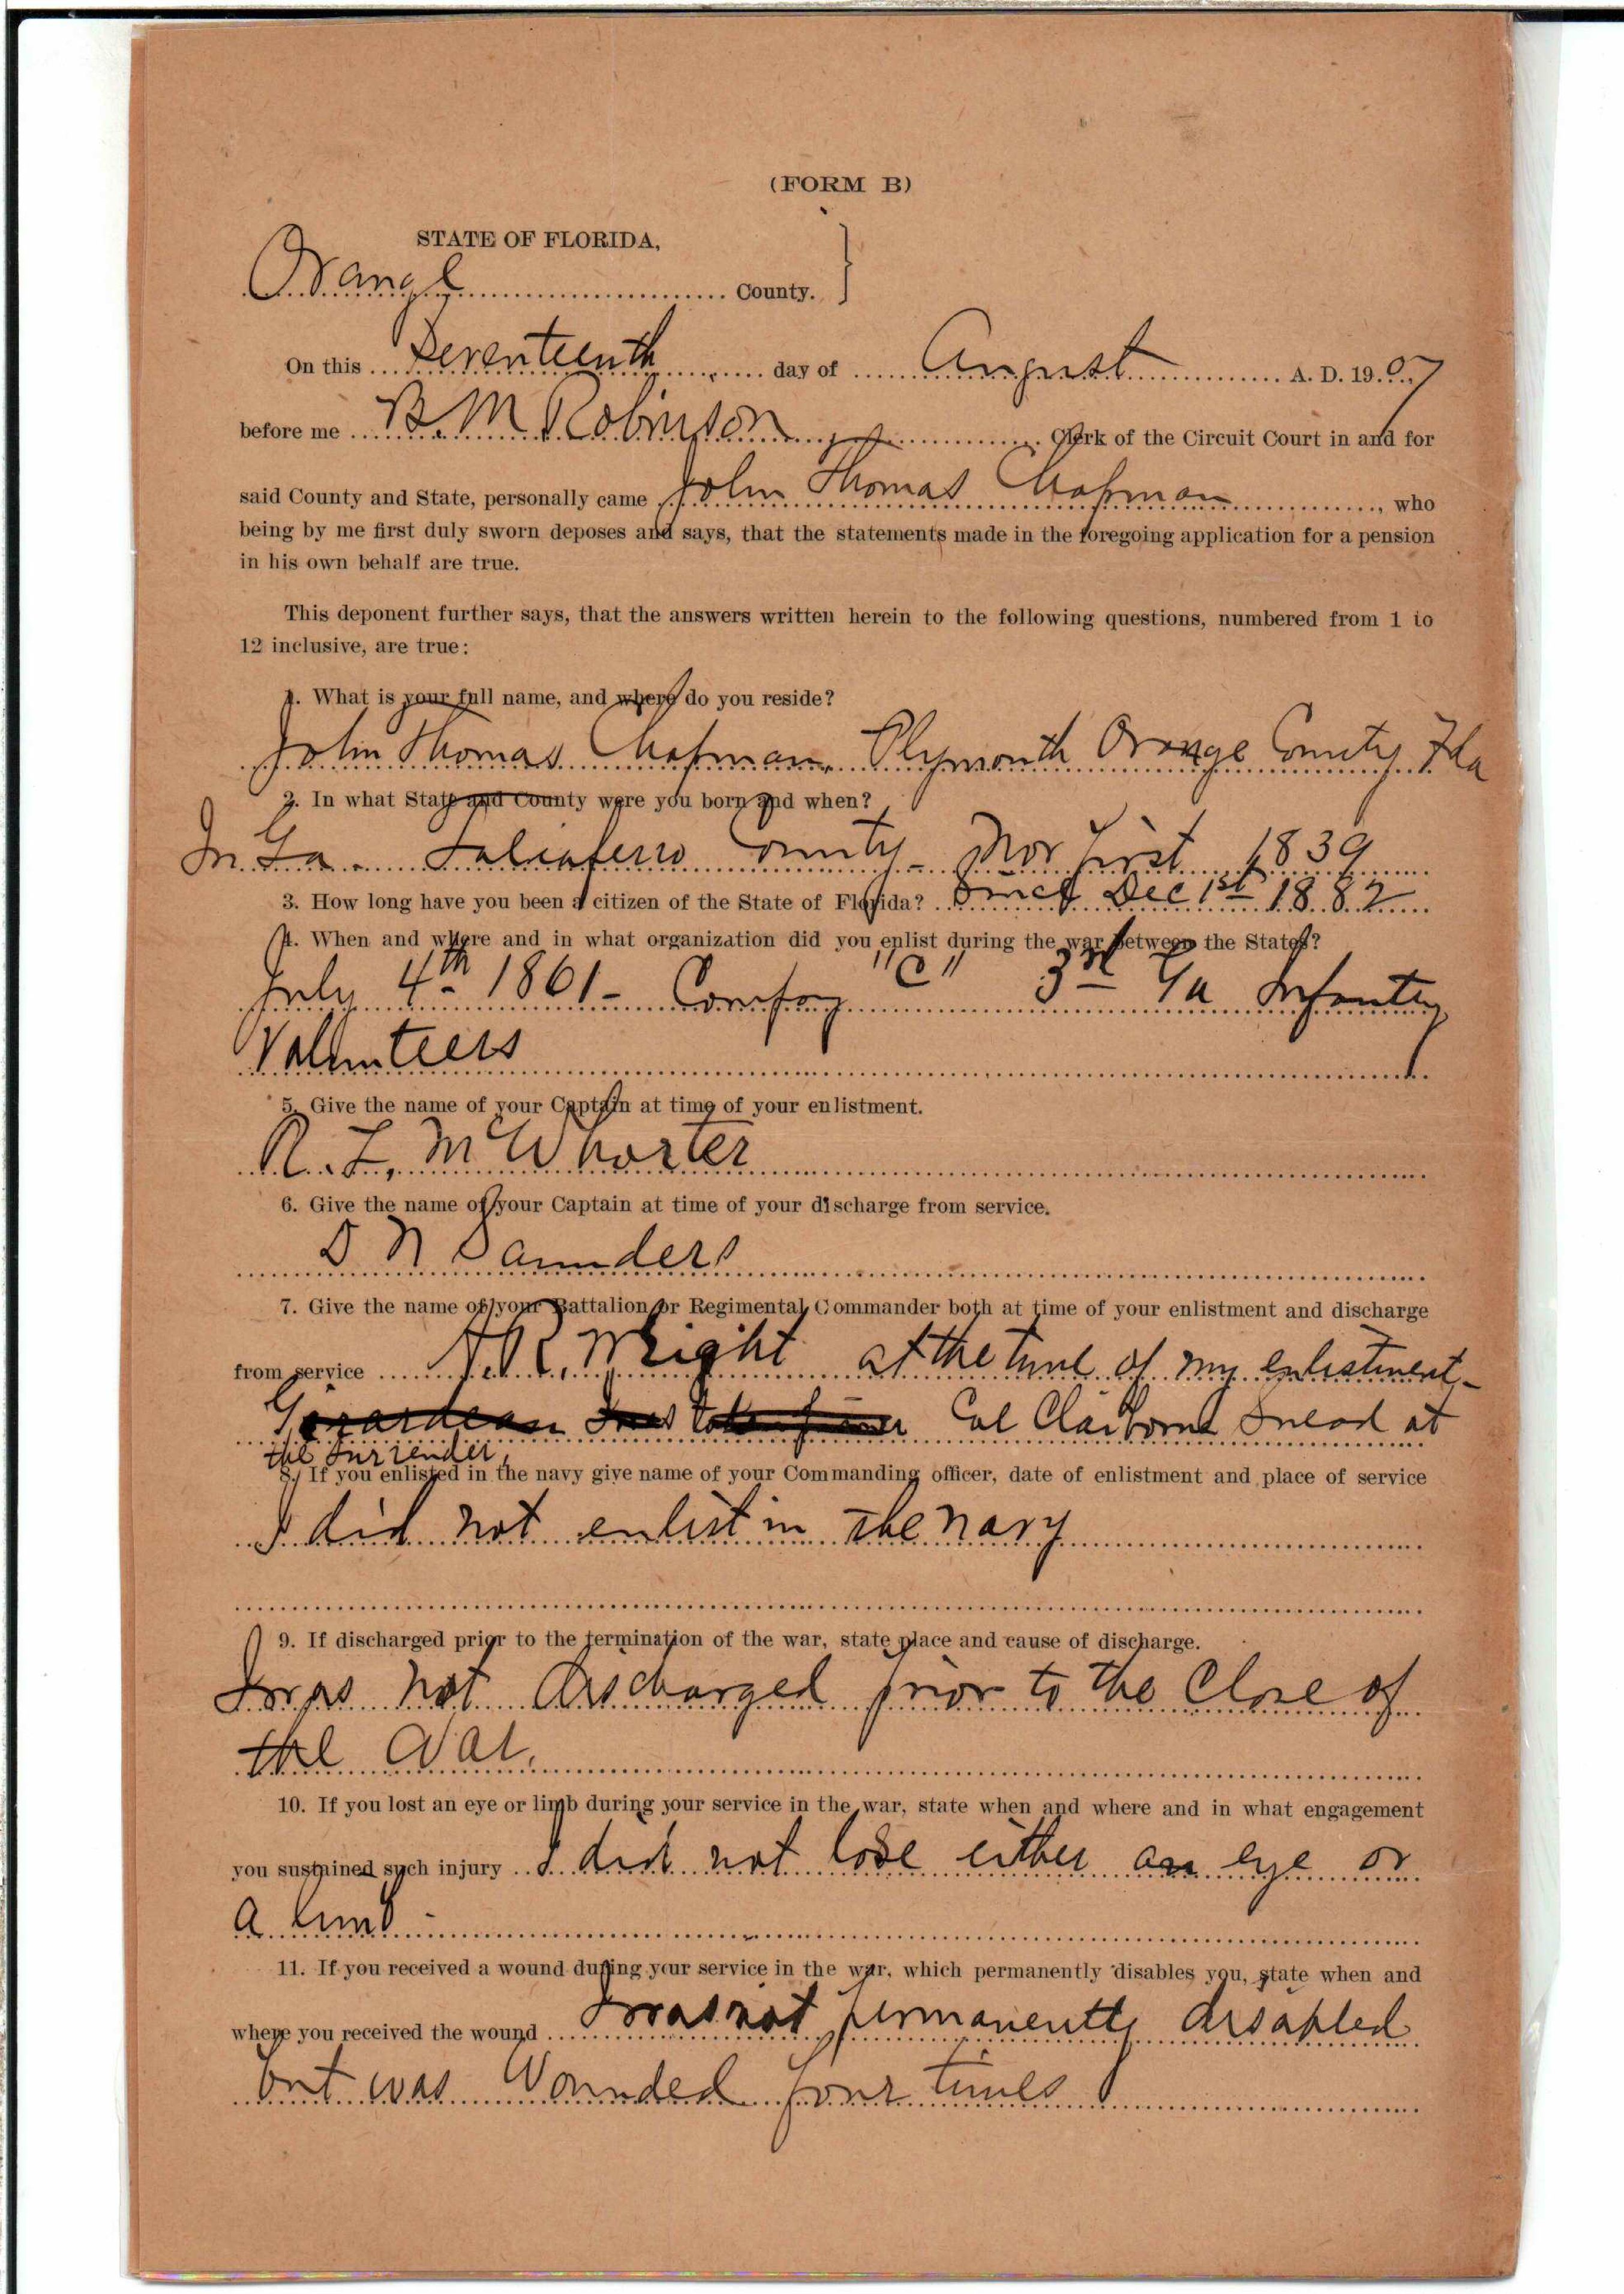 (FORM B)
STATE OF FLORIDA,
Orange County.
On this Seventeenth day of August A. D. 1907
before me B. M Robinson Clerk of the Circuit Court in and for
said County and State, personally came John Thomas Chapman, who
being by me first duly sworn deposes and says, that the statements made in the foregoing application for a pension
in his own behalf are true.
This deponent further says, that the answers written herein to the following questions, numbered from 1 to
12 inclusive, are true:
1. What is your full name, and where do you reside?
John Thomas Chapman. Plymouth Orange County Fla
2. In what State and County were you born and when?
In Ga. Taliaferro County - Nov first 1839
3. How long have you been a citizen of the State of Florida? Since Dec 1st 1882
4. When and where and in what organization did you enlist during the war between the States?
July 4th 1861 - Company "C" 3rd Ga Infantry
Volunteers
5. Give the name of your Captain at time of your enlistment.
R. L. McWhorter
6. Give the name of your Captain at time of your discharge from service.
D N Saunders
7. Give the name of your Battalion or Regimental Commander both at time of your enlistment and discharge
from service A. R. Wright at the time of my enlistment -
Col Claiborne Snead at
the surrender,
8. If you enlisted in the navy give name of your Commanding officer, date of enlistment and place of service
I did not enlist in the navy
9. If discharged prior to the termination of the war, state place and cause of discharge.
I was not discharged prior to the Close of
the War.
10. If you lost an eye or limb during your service in the war, state when and where and in what engagement
you sustained such injury I did not lose either an eye or
a limb -
11. If you received a wound during your service in the war, which permanently disables you, state when and
where you received the wound I was not permanently disabled
but was Wounded four times